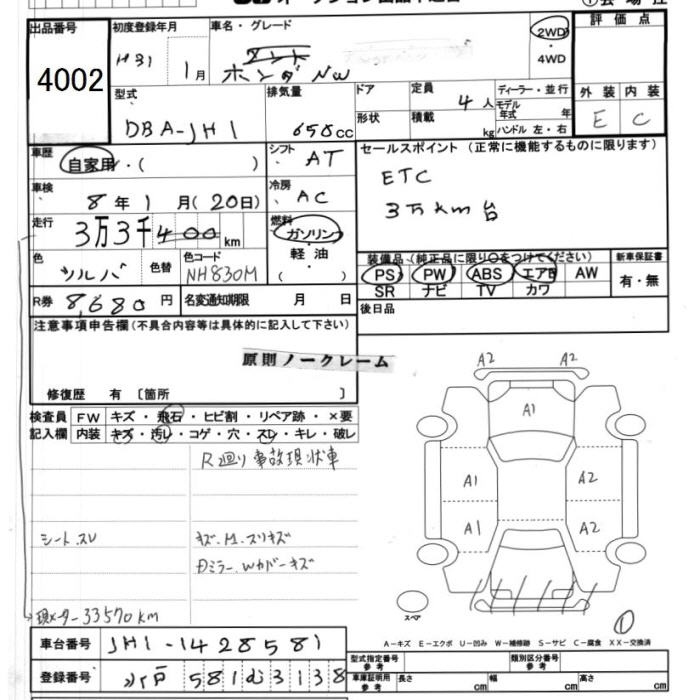 ①会場住
出品番号
4002
初度登録年月
H31 1月
車名・グレード
ホンダ NW
2WD
・
4WD
評価点
外装 内装
E C
型式
DBA-JH1
排気量
658cc
ドア
形状
定員
4人
積載
kg
ディーラー・並行
モデル年式 年
ハンドル 左・右
車歴
自家用・( )
シフト
AT
セールスポイント (正常に機能するものに限ります)
ETC
3万km台
車検
8年1月(20日)
冷房
AC
走行
3万3千400km
燃料
ガソリン
・
軽油
・
( )
色
ツルバ
色替
色コード
NH830M
装備品 (純正品に限り○をつけてください)
PS PW ABS エアB AW
SR ナビ TV カワ
新車保証書
有・無
R券 8,680円
名変通知期限 月 日
後日品
注意事項申告欄(不具合内容等は具体的に記入して下さい)
原則ノークレーム
修復歴 有 [箇所 ]
検査員
記入欄
FW キズ・飛石・ヒビ割・リペア跡・×要
内装 キズ・汚れ・コゲ・穴・スレ・キレ・破レ
R廻り事故現状車
シート.スレ
キズ.M.スリキズ
Dミラー.Wカバーキズ
現メーター33570km
A2 A2
A1
A1 A2
A1 A2
スペア
①
A-キズ E-エクボ U-凹み W-補修跡 S-サビ C-腐食 XX-交換済
車台番号 JH1-1428581
登録番号 水戸 581 3138
型式指定番号
参考
類別区分番号
参考
車庫証明用
参考
長さ cm 幅 cm 高さ cm